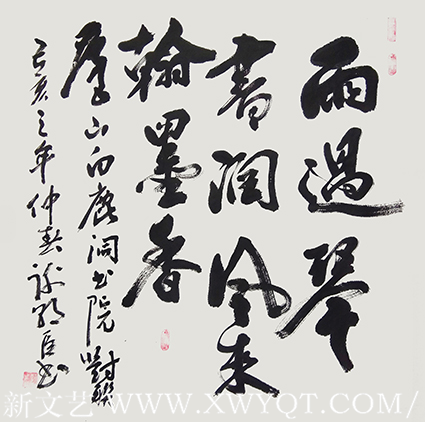 雨過琴
書潤風来
翰墨香
庐山白鹿洞书院對聯
己亥之年仲春书
新文艺 WWW.XWYQT.COM/